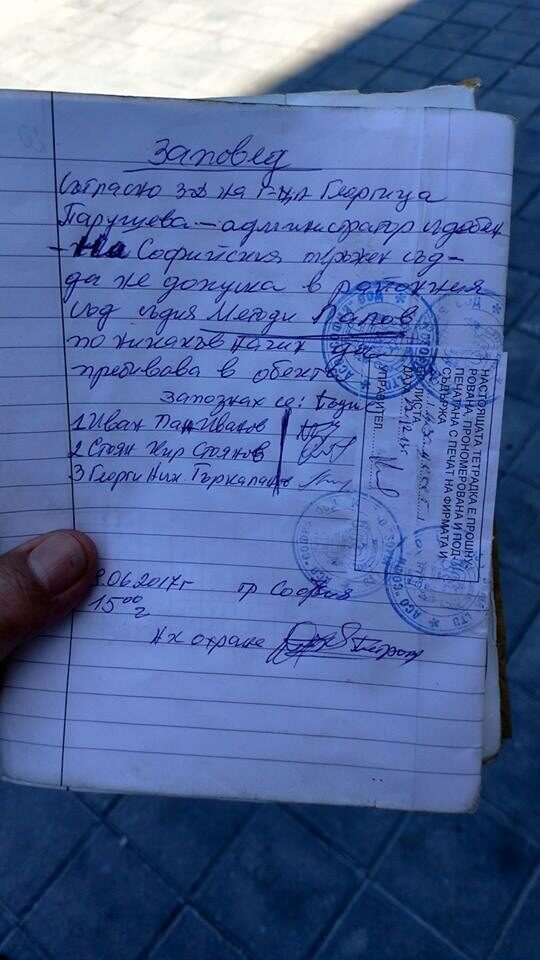 Заповед
Съгласно з-д на г-жа Гергица
Парушева – администратор съдебен
– На Софийския градски съд –
да не допуска в районния
съд съдия Методи Лалов
по никакъв начин да
пребивава в обекта
Запознах се:
1 Иван Пан Иванов
2 Стоян Кир Стоянов
3 Георги Ник.
.06.2017г гр София
15⁰⁰ г
Нх охрана
НАСТОЯЩАТА ТЕТРАДКА Е ПРОШНУ-
РОВАНА, ПРОНОМЕРОВАНА И ПОД-
ПЕЧАТАНА С ПЕЧАТ НА ФИРМАТА И
СЪДЪРЖА
ЛИСТА
ДАТА
УПРАВИТЕЛ